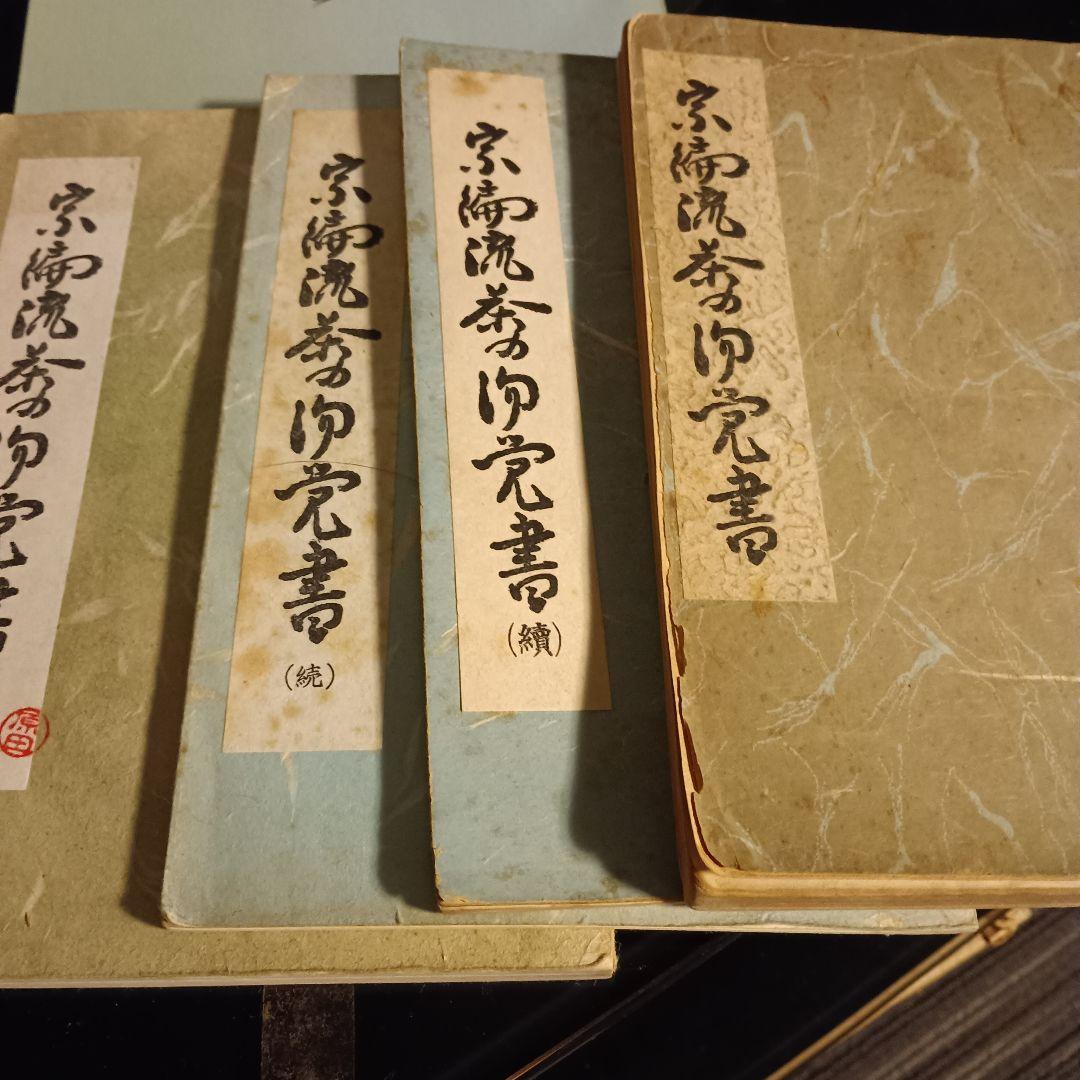 宗徧流茶の湯覚書
宗徧流茶の湯覚書
(續)
宗徧流茶の湯覚書
(続)
宗徧流茶の湯覚書